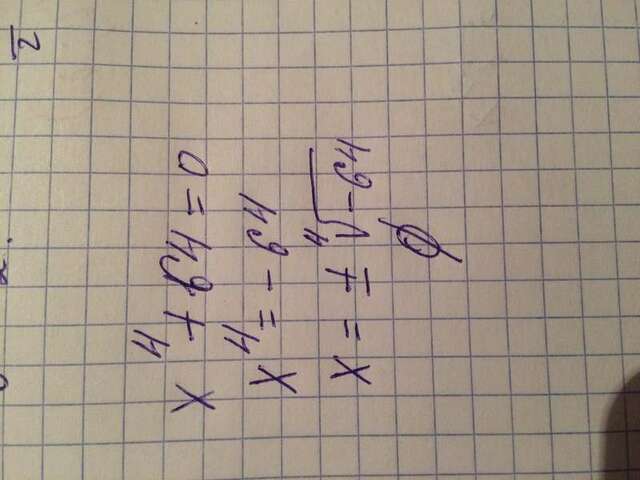 2.
2
x⁴ + 64 = 0
x⁴ = - 64
x = ± ∜-64
∅